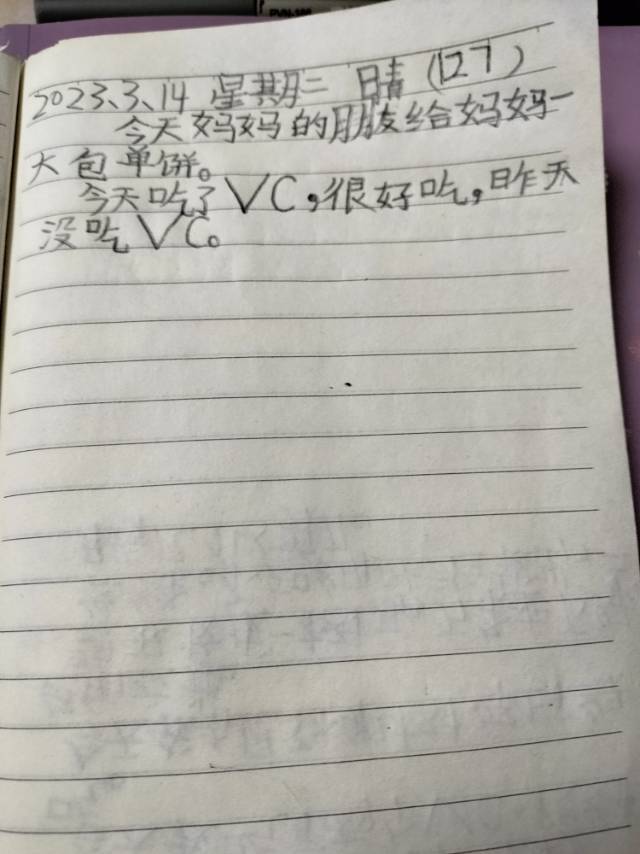 2023、3、14 星期二 晴 (127)
今天妈妈的朋友给妈妈一
大包单饼。
今天吃了VC,很好吃,昨天
没吃VC。